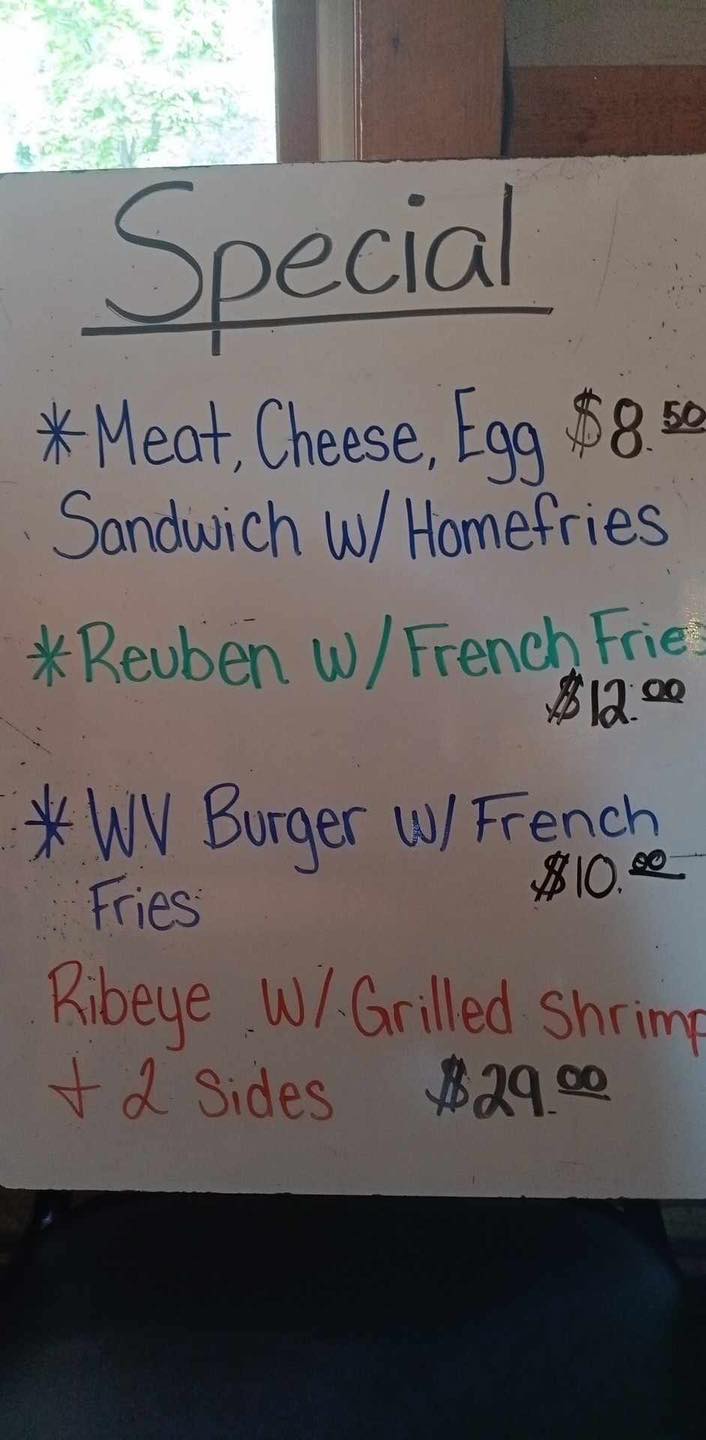 Special
*Meat, Cheese, Egg $8.50
Sandwich w/ Homefries
*Reuben w/ French Fries
$12.00
*WV Burger w/ French
Fries $10.00
Ribeye w/ Grilled Shrimp
+ 2 Sides $29.00